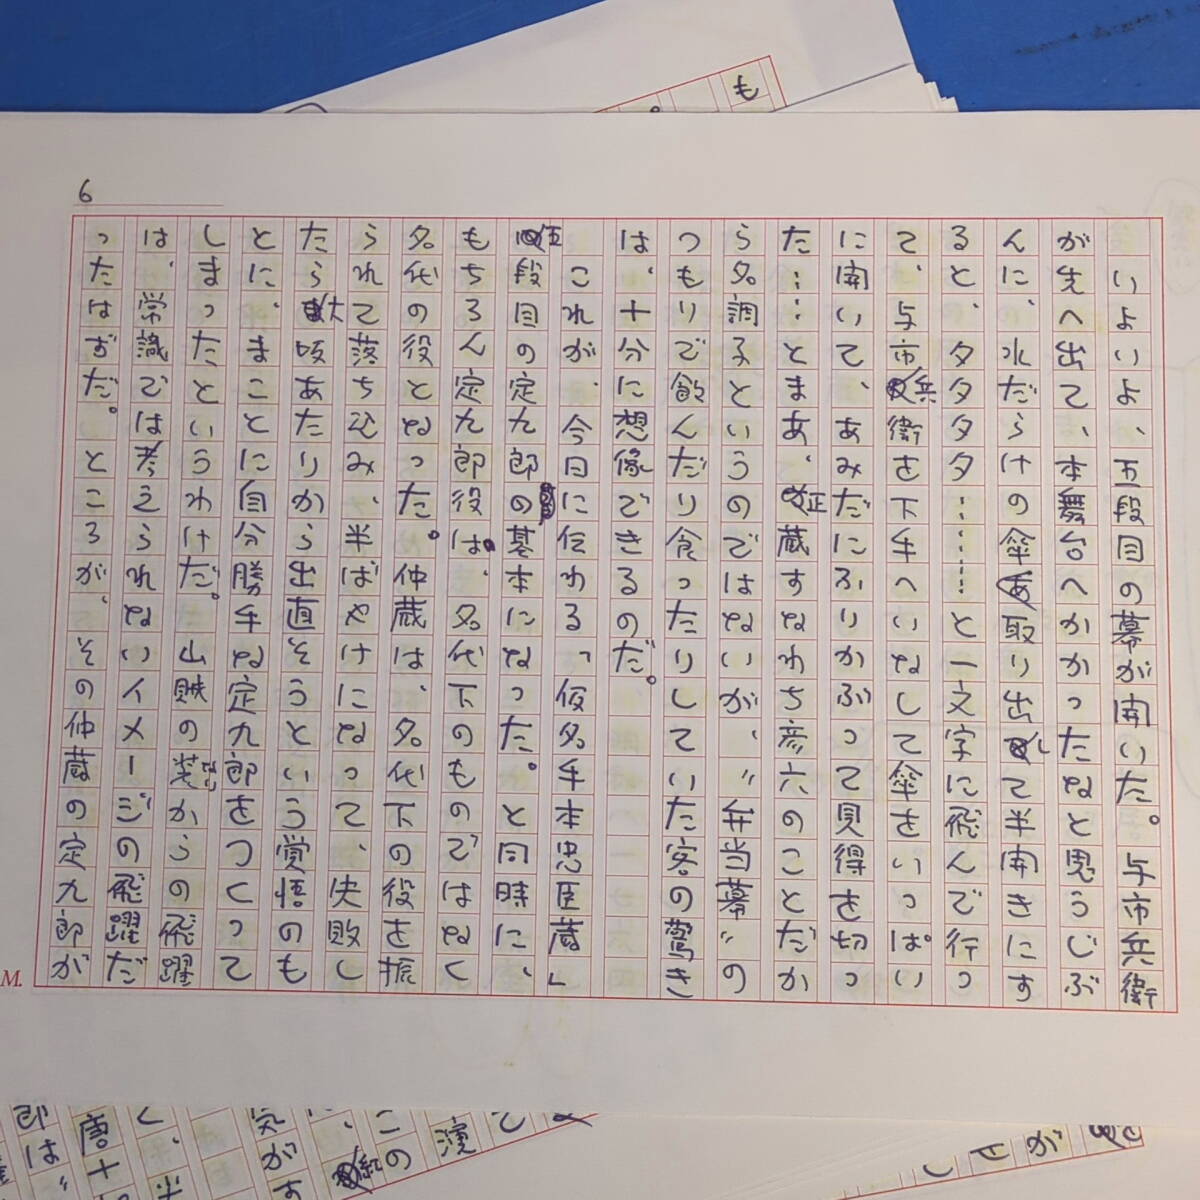 6
いよいよ、五段目の幕が開いた。与市兵衛
が先へ出て、本舞台へかかったなと思うじぶ
んに、水だらけの傘取り出して半開きにす
ると、タタタタ……と一文字に飛んで行っ
て、与市兵衛を下手へいなして傘をいっぱい
に開いて、あみだにふりかぶって見得を切っ
た……とまあ、正蔵すなわち彦六のことだか
ら名調子というのではないが、〝弁当幕〟の
つもりで飲んだり食ったりしていた客の驚き
は、十分に想像できるのだ。
これが、今日に伝わる「仮名手本忠臣蔵」
五段目の定九郎の基本になった。と同時に、
もちろん定九郎役は、名代下のものではなく
名代の役となった。仲蔵は、名代下の役を振
られて落ち込み、半ばやけになって、失敗し
たら大坂あたりから出直そうという覚悟のも
とに、まことに自分勝手な定九郎をつくって
しまったというわけだ。山賊の装からの飛躍
は、常識では考えられないイメージの飛躍だ
ったはずだ。ところが、その仲蔵の定九郎が
M.